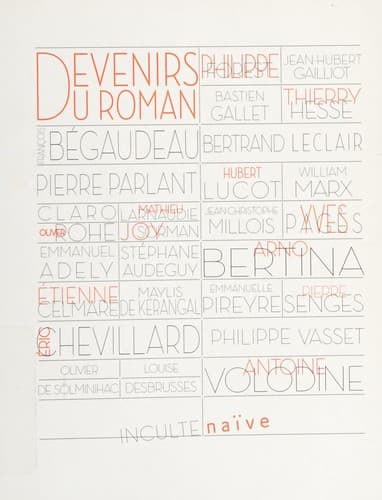 DEVENIRS
DU ROMAN
PHILIPPE
FOREST
JEAN-HUBERT
GAILLIOT
BASTIEN
GALLET
THIERRY
HESSE
FRANÇOIS
BÉGAUDEAU
BERTRAND LECLAIR
PIERRE PARLANT
HUBERT
LUCOT
WILLIAM
MARX
CLARO
MATHIEU
LARNAUDIE
OLIVER
ROHE
JOY
SORMAN
JEAN-CHRISTOPHE
MILLOIS
YVES
PAGÈS
EMMANUEL
ADELY
STÉPHANE
AUDEGUY
ARNO
BERTINA
ÉTIENNE
CELMARE
MAYLIS
DE KERANGAL
EMMANUELLE
PIREYRE
PIERRE
SENGES
ÉRIC
CHEVILLARD
PHILIPPE VASSET
OLIVIER
DE SOLMINIHAC
LOUISE
DESBRUSSES
ANTOINE
VOLODINE
INCULTE naïve